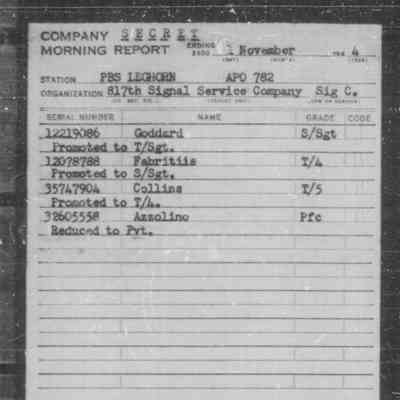 COMPANY SECRET
MORNING REPORT ENDING 2400 November 194 4
STATION PBS LEGHORN APO 782
ORGANIZATION 817th Signal Service Company Sig C.
SERIAL NUMBER NAME GRADE CODE
12219086 Goddard S/Sgt
Promoted to T/Sgt.
12078788 Fabritiis T/4
Promoted to S/Sgt.
35747904 Collins T/5
Promoted to T/4.
32605558 Azzolino Pfc
Reduced to Pvt.